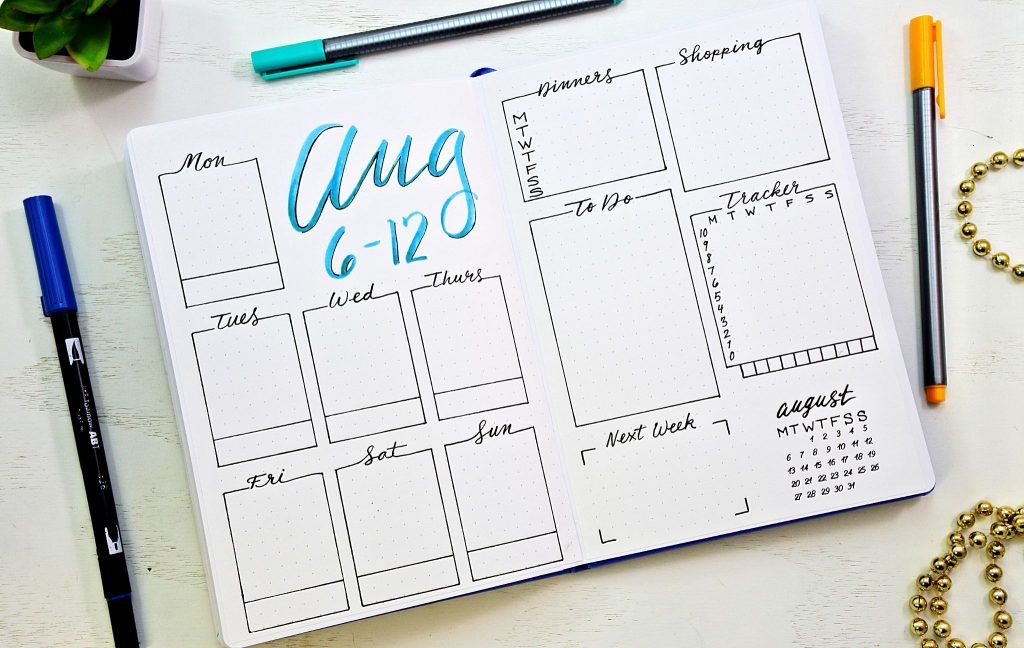 Mon
Aug
6-12
Tues
Wed
Thurs
Fri
Sat
Sun
Dinners
M
T
W
T
F
S
S
Shopping
To Do
Tracker
M T W T F S S
10
9
8
7
6
5
4
3
2
1
0
Next Week
august
M T W T F S S
1 2 3 4 5
6 7 8 9 10 11 12
13 14 15 16 17 18 19
20 21 22 23 24 25 26
27 28 29 30 31
ABT